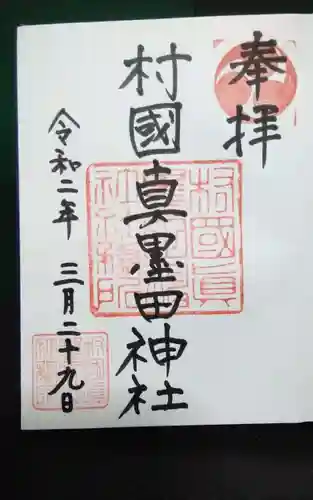 奉拝
村國真墨田神社
令和二年 三月二十九日